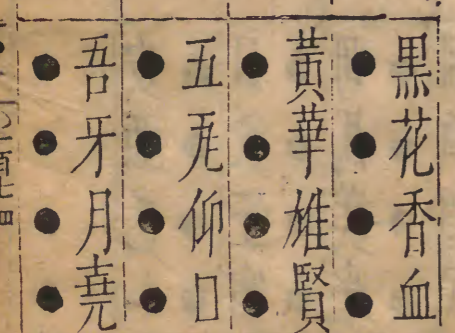 黑花香血
●●●●
黃華雄賢
●●●●
五瓦仰□
●●●●
吾牙月堯
●●●●